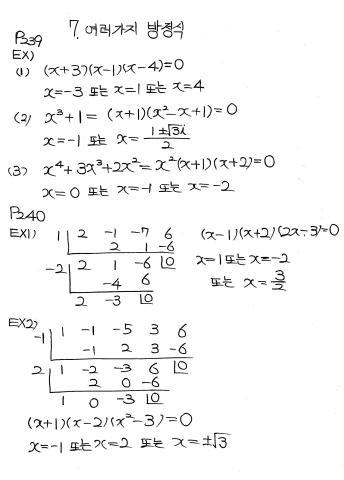 7. 여러가지 방정식
P239
EX)
(1) (x+3)(x-1)(x-4)=0
x=-3 또는 x=1 또는 x=4
(2) x³+1 = (x+1)(x²-x+1)=0
x=-1 또는 x= (1±√3i)/2
(3) x⁴+3x³+2x²= x²(x+1)(x+2)=0
x=0 또는 x=-1 또는 x=-2
P240
EX1) 1 | 2 -1 -7 6 (x-1)(x+2)(2x-3)=0
2 1 -6
-2 | 2 1 -6 |0 x=1 또는 x=-2
-4 6 또는 x= 3/2
2 -3 |0
EX2)
-1 | 1 -1 -5 3 6
-1 2 3 -6
2 | 1 -2 -3 6 |0
2 0 -6
1 0 -3 |0
(x+1)(x-2)(x²-3)=0
x=-1 또는 x=2 또는 x=±√3